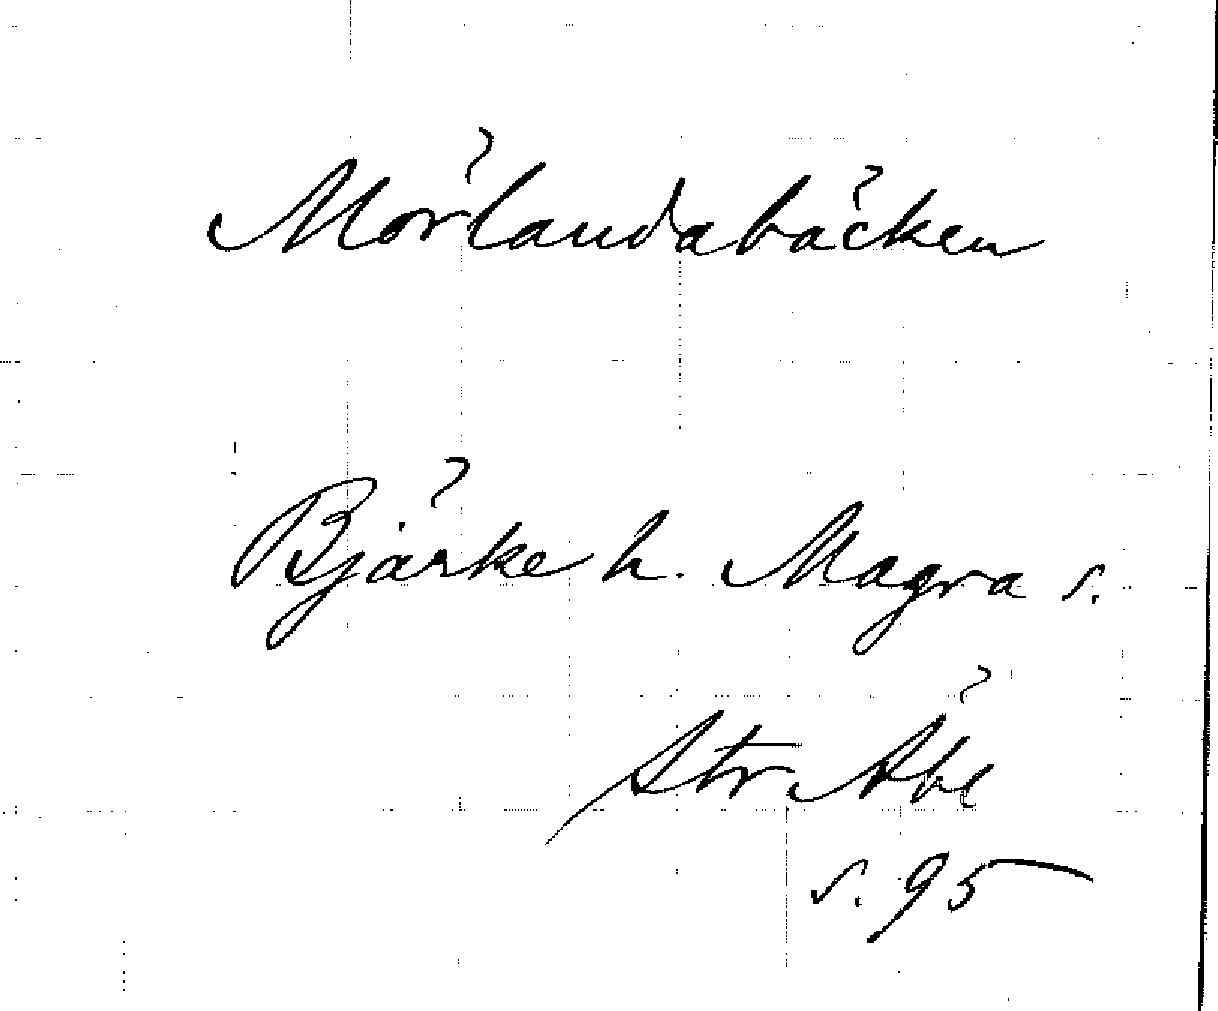 Mörlandabäcken
Bjärke h. Magra s.
Str Åbl
s. 95